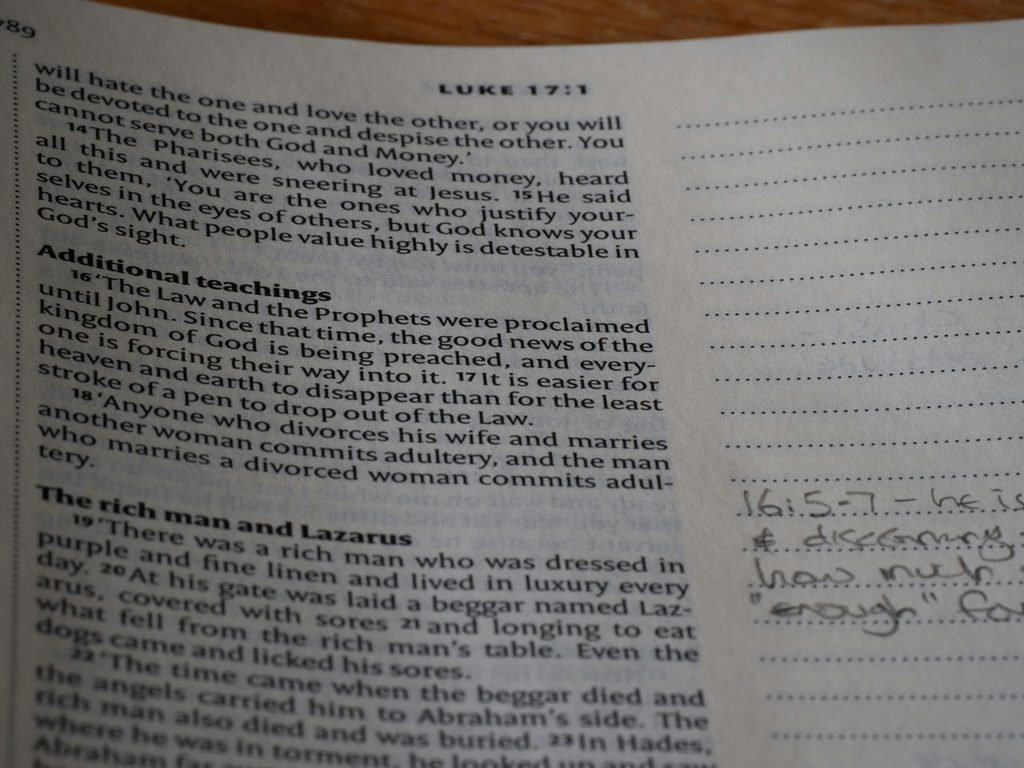 789
LUKE 17:1
will hate the one and love the other, or you will
be devoted to the one and despise the other. You
cannot serve both God and Money.’
14 The Pharisees, who loved money, heard
all this and were sneering at Jesus. 15 He said
to them, ‘You are the ones who justify your-
selves in the eyes of others, but God knows your
hearts. What people value highly is detestable in
God’s sight.
Additional teachings
16 ‘The Law and the Prophets were proclaimed
until John. Since that time, the good news of the
kingdom of God is being preached, and every-
one is forcing their way into it. 17 It is easier for
heaven and earth to disappear than for the least
stroke of a pen to drop out of the Law.
18 ‘Anyone who divorces his wife and marries
another woman commits adultery, and the man
who marries a divorced woman commits adul-
tery.
The rich man and Lazarus
19 ‘There was a rich man who was dressed in
purple and fine linen and lived in luxury every
day. 20 At his gate was laid a beggar named Laz-
arus, covered with sores 21 and longing to eat
what fell from the rich man’s table. Even the
dogs came and licked his sores.
22 ‘The time came when the beggar died and
the angels carried him to Abraham’s side. The
rich man also died and was buried. 23 In Hades,
where he was in torment, he looked up and saw
Abraham far
16:5-7 – he is
& discerning
how much
"enough"